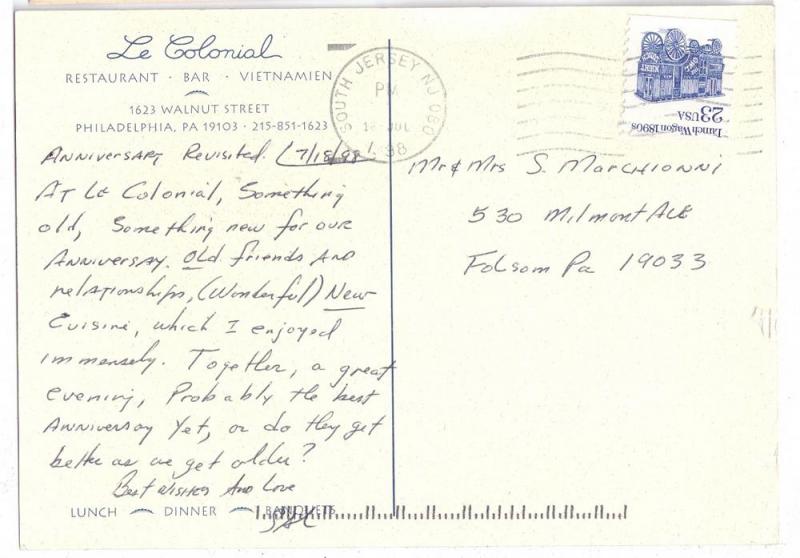 Le Colonial
RESTAURANT · BAR · VIETNAMIEN
1623 WALNUT STREET
PHILADELPHIA, PA 19103 · 215-851-1623
Anniversary Revisited. (7/18/98
At Le Colonial, Something
old, Something new for our
Anniversay. Old friends and
relationships, (Wonderful) New
Cuisine, which I enjoyed
immensely. Together, a great
evening, Probably the best
Anniversay Yet, or do they get
better as we get older?
Best Wishes And Love
LUNCH DINNER BANQUETS
SOUTH JERSEY NJ 080
PM
JUL
1998
Lunch Wagon 1890s
23 USA
Mr & Mrs S. Marchionni
530 Milmont Ave
Folsom Pa 19033